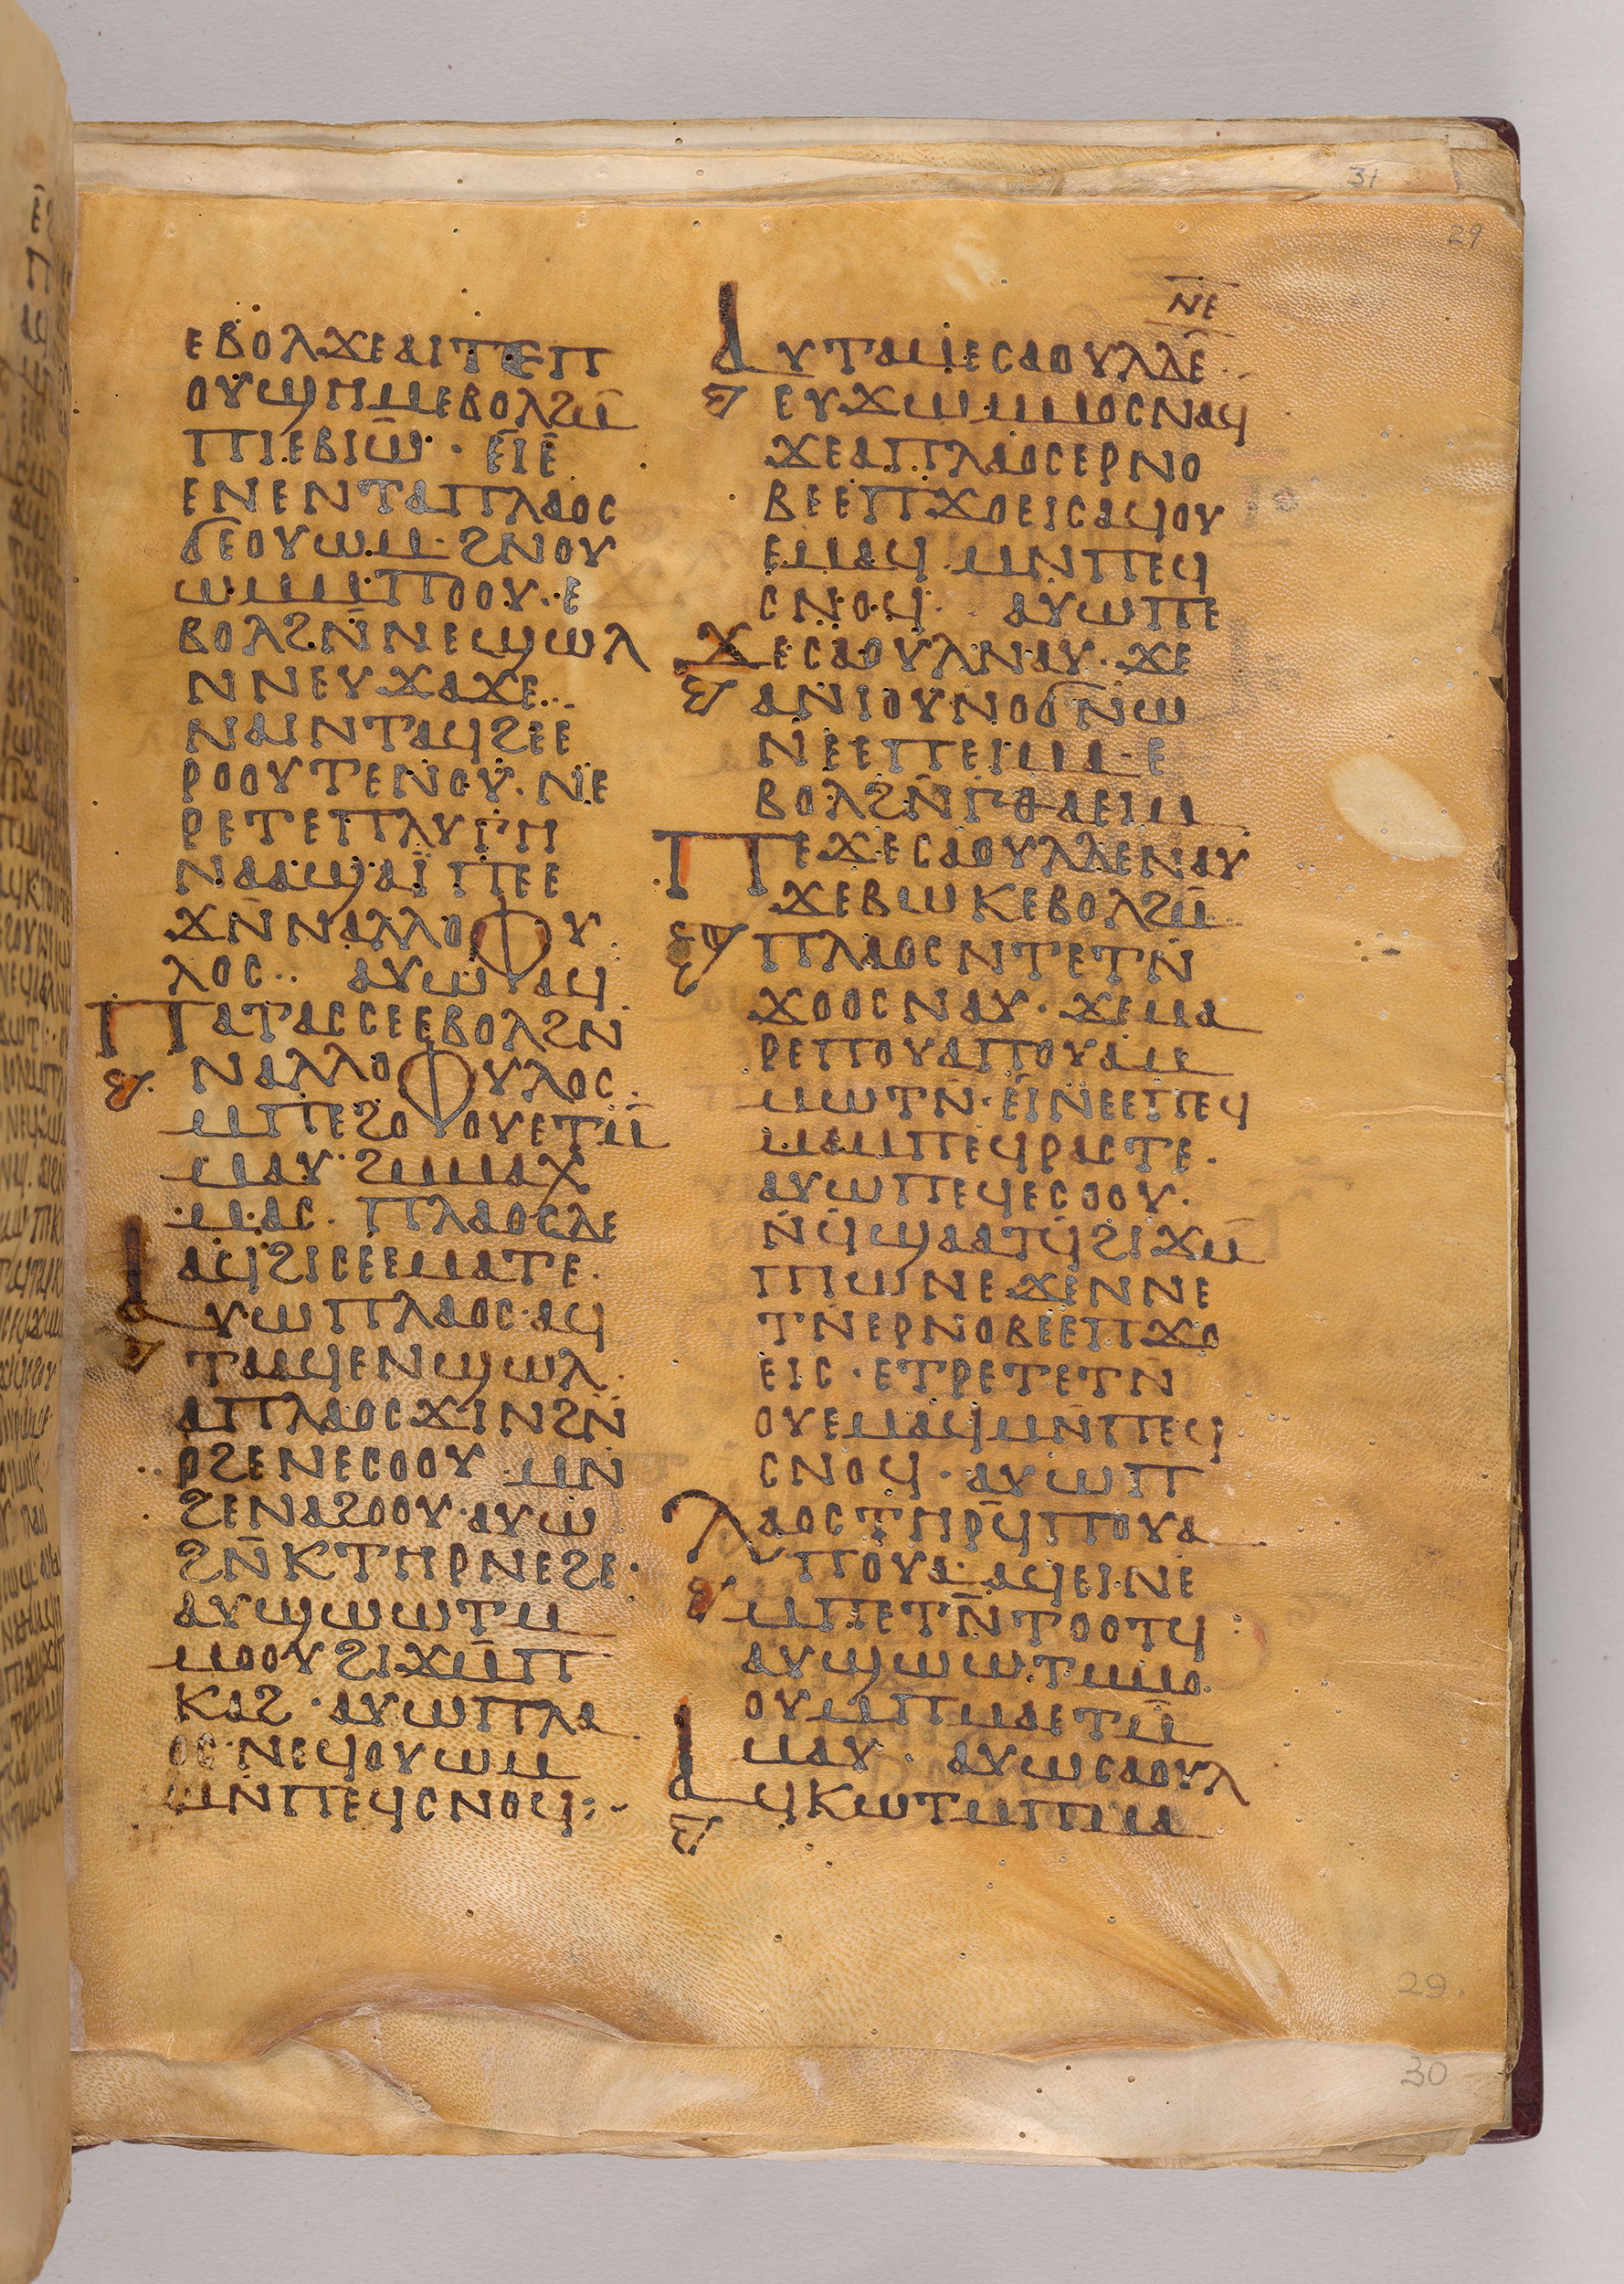 31
29
ⲛⲉ
ⲉⲃⲟⲗϫⲉⲁⲓⲧⲉⲡ
ⲟⲩϣⲏⲙⲉⲃⲟⲗϩⲙ̄
ⲡⲓⲉⲃⲓⲱ̄ · ⲉ̄ⲓⲉ̄
ⲉⲛⲉⲛⲧⲁⲡⲗⲁⲟⲥ
ϭⲉⲟⲩⲱⲙ · ϩⲛⲟⲩ
ⲱⲙⲙ̄ⲡⲟⲟⲩ · ⲉ
ⲃⲟⲗϩⲛ̄ⲛⲉϣⲱⲗ
ⲛⲛⲉⲩϫⲁϫⲉ ·
ⲛⲁⲓⲛⲧⲁϥϩⲉⲉ
ⲣⲟⲟⲩⲧⲉⲛⲟⲩ · ⲛⲉ
ⲣⲉⲧⲉⲡⲗⲩⲅⲏ
ⲛⲁⲁϣⲁⲓ̈ⲡⲉⲉ
ϫⲛ̄ⲛⲁⲗⲗⲟⲫⲩ
ⲗⲟⲥ · ⲁⲩⲱⲁϥ
ⲡⲁⲧⲁⲥⲥⲉⲉⲃⲟⲗϩⲛ
ⲛⲁⲗⲗⲟⲫⲩⲗⲟⲥ
ⲙⲡⲉϩⲟⲟⲩⲉⲧⲙ̄
ⲙⲁⲩ · ϩⲙⲙⲁⲭ
ⲙⲁⲥ · ⲡⲗⲁⲟⲥⲇⲉ
ⲁϥϩⲓⲥⲉⲉⲙⲁⲧⲉ ·
ⲁⲩⲱⲡⲗⲁⲟⲥ · ⲁϥ
ⲧⲁϥⲉⲛϣⲱⲗ ·
ⲁⲡⲗⲁⲟⲥϫⲓⲛϩⲛ̄
ⲟϩⲉⲛⲉⲥⲟⲟⲩ · ⲙⲛ
ϩⲉⲛⲁϩⲟⲟⲩ · ⲁⲩⲱ
ϩⲛ̄ⲕⲧⲏⲣⲛⲉϩⲉ ·
ⲁⲩϣⲱⲱⲧⲙ
ⲙⲟⲟⲩϩⲓϫⲙ̄ⲡ
ⲕⲁϩ · ⲁⲩⲱⲡⲗⲁ
ⲟⲥ · ⲛⲉϥⲟⲩⲱⲙ
ⲙⲛ̄ⲡⲉϥⲥⲛⲟϥ :~
ⲁⲩⲧⲁⲙⲉⲥⲁⲟⲩⲗⲇⲉ ·
ⲉⲩϫⲱⲙⲙⲟⲥⲛⲁϥ
ϫⲉⲁⲡⲗⲁⲟⲥⲉⲣⲛⲟ
ⲃⲉⲉⲡϫⲟⲉⲓⲥⲁϥⲟⲩ
ⲉⲙⲁϥ · ⲙⲛⲡⲉϥ
ⲥⲛⲟϥ · ⲁⲩⲱⲡⲉ
ϫⲉⲥⲁⲟⲩⲗⲛⲁⲩ · ϫⲉ
ⲁⲛⲓⲟⲩⲛⲟϭⲛ̄ⲱ
ⲛⲉⲉⲡⲉⲓⲙⲁ · ⲉ
ⲃⲟⲗϩⲛ̄ⲅⲟⲁⲉⲓⲙ
ⲡⲉϫⲉⲥⲁⲟⲩⲗⲇⲉⲛⲁⲩ
ϫⲉⲃⲱⲕⲉⲃⲟⲗϩⲙ̄
ⲡⲗⲁⲟⲥⲛⲧⲉⲧⲛ̄
ϫⲟⲟⲥⲛⲁⲩ · ϫⲉⲙⲁ
ⲣⲉⲡⲟⲩⲁⲡⲟⲩⲁⲙ
ⲙⲱⲧⲛ̄ · ⲉ̄ⲓⲛⲉⲉⲡⲉϥ
ⲙⲁⲙⲡⲉϥⲣⲁⲥⲧⲉ ·
ⲁⲩⲱⲡⲉϥⲉⲥⲟⲟⲩ ·
ⲛ̄ϥϣⲁⲁⲧϥϩⲓϫⲙ̄
ⲡⲓⲱⲛⲉ · ϫⲉⲛⲛⲉ
ⲧⲛⲉⲣⲛⲟⲃⲉⲉⲡϫⲟ
ⲉⲓⲥ · ⲉⲧⲣⲉⲧⲉⲧⲛ̄
ⲟⲩⲉⲙⲁϥⲙⲛ̄ⲡⲉϥ
ⲥⲛⲟϥ · ⲁⲩⲱⲡ
ⲗⲁⲟⲥⲧⲏⲣϥⲡⲟⲩⲁ
ⲡⲟⲩⲁ · ⲁϥⲉⲓⲛⲉ
ⲙⲡⲉⲧⲛ̄ⲧⲟⲟⲧϥ ·
ⲁⲩϣⲱⲱⲧⲙⲙⲟ
ⲟⲩⲙⲡⲙⲁⲉⲧⲙ̄
ⲙⲁⲩ · ⲁⲩⲱⲥⲁⲟⲩⲗ
ⲁϥⲕⲱⲧⲙⲡⲙⲁ
29
30